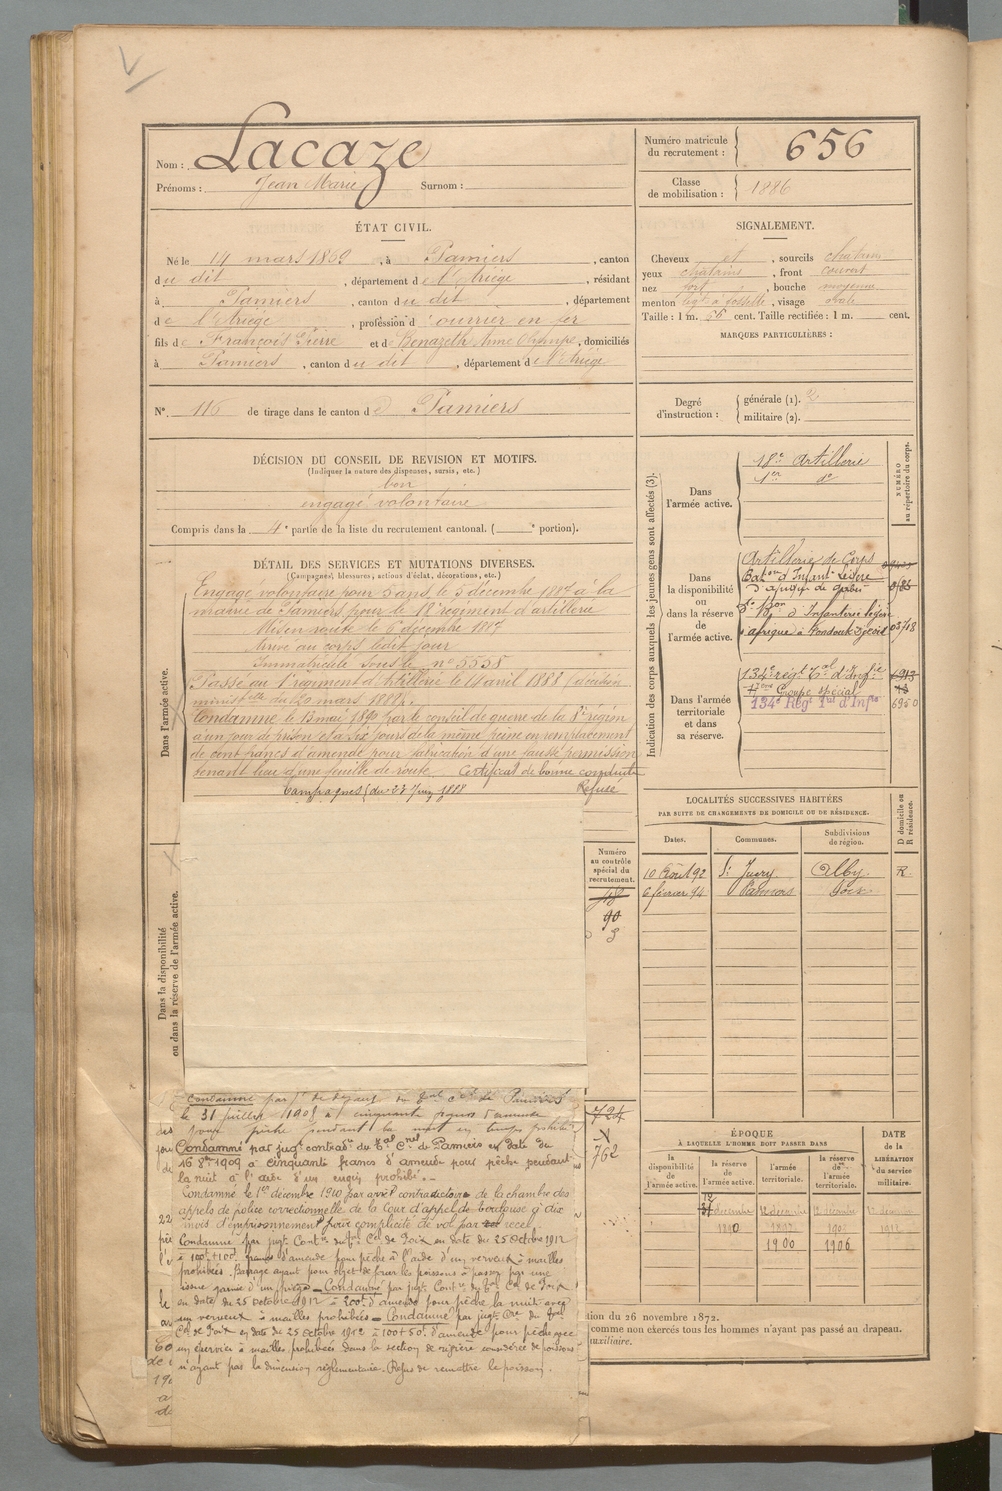 Nom : Lacaze
Prénoms : Jean Marie Surnom :
Numéro matricule du recrutement : 656
Classe de mobilisation : 1886
ÉTAT CIVIL.
Né le 14 mars 1869, à Pamiers, canton
du dit, département de l'Ariège, résidant
à Pamiers, canton du dit, département
de l'Ariège, profession d'ouvrier en fer
fils de François Pierre et de Benazeth Anne Olympe, domiciliés
à Pamiers, canton du dit, département de l'Ariège
N° 116 de tirage dans le canton de Pamiers
SIGNALEMENT.
Cheveux et, sourcils chatains
yeux chatains, front couvert
nez fort, bouche moyenne
menton à fossette, visage ovale
Taille : 1 m. 56 cent. Taille rectifiée : 1 m. cent.
MARQUES PARTICULIÈRES :
Degré d'instruction : générale (1). 2
militaire (2).
DÉCISION DU CONSEIL DE REVISION ET MOTIFS.
(Indiquer la nature des dispenses, sursis, etc.)
bon
engagé volontaire
Compris dans la 4e partie de la liste du recrutement cantonal. ( portion).
DÉTAIL DES SERVICES ET MUTATIONS DIVERSES.
(Campagnes, blessures, actions d'éclat, décorations, etc.)
Dans l'armée active.
Engagé volontaire pour 5 ans le 5 décembre 1887 à la
mairie de Pamiers pour le 18e régiment d'artillerie
Mis en route le 6 décembre 1887
Arrivé au corps ledit jour
Immatriculé sous le n° 5558
Passé au 1er régiment d'Artillerie le 11 avril 1888 (décision
ministelle du 20 mars 1888).
Condamné le 13 mai 1890 par le conseil de guerre de la 8e région
à un jour de prison et à dix jours de la même peine en remplacement
de cent francs d'amende pour fabrication d'une fausse permission
tenant lieu d'une feuille de route. Certificat de bonne conduite
Refusé
Campagnes (du 27 Juin 1888
Indication des corps auxquels les jeunes gens sont affectés (3).
NUMÉRO au répertoire du corps.
Dans l'armée active.
18e Artillerie
1er do
Dans la disponibilité ou dans la réserve de l'armée active.
Artillerie de Corps
Baton d'Infanie Légère
d'afrique de Gabès
5e Bon d'Infanterie légère
d'afrique à 03718
Dans l'armée territoriale et dans sa réserve.
134e régt Tal d'Infie 6913
Groupe spécial
134e Régt Tal d'Infie 6950
LOCALITÉS SUCCESSIVES HABITÉES
PAR SUITE DE CHANGEMENTS DE DOMICILE OU DE RÉSIDENCE.
Dates. Communes. Subdivisions de région. D domicile ou R résidence.
10 Août 92 St Juery Alby R
6 février 94 Pamiers Foix
Dans la disponibilité ou dans la réserve de l'armée active.
Numéro au contrôle spécial du recrutement.
90
3
724
762
Condamné par jt de défaut du Tal cel de Pamiers
le 31 juillet 1908 à cinquante francs d'amende
pour pêche pendant la nuit en temps prohibé
Condamné par jugt contradre du Tal Cnel de Pamiers en date du
16 8bre 1909 à cinquante francs d'amende pour pêche pendant
la nuit à l'aide d'un engin prohibé.
Condamné le 1er décembre 1910 par arrêt contradictoire de la chambre des
appels de police correctionnelle de la Cour d'appel de Toulouse à dix
mois d'emprisonnement pour complicité de vol par recel.
Condamné par jugt. Contre du Tal Cel de Foix en date du 25 octobre 1912
à 100f+100f francs d'amende pour pêche à l'aide d'un verveux à mailles
prohibées. Barrage ayant pour objet de forcer les poissons à passer par une
issue garnie d'un piège. Condamné par jugt. Contre du Tal Cel de Foix
en date du 25 octobre 1912 à 200f d'amende pour pêche la nuit avec
un verveux à mailles prohibées. Condamné par jugt Cre du Tal
Cel de Foix en date du 25 octobre 1912 à 100+50f d'amende pour pêche avec
un épervier à mailles prohibées dans la section de rivière considérée de poissons
n'ayant pas la dimension réglementaire. Refus de remettre le poisson.
ÉPOQUE
À LAQUELLE L'HOMME DOIT PASSER DANS
DATE de la LIBÉRATION du service militaire.
la disponibilité de l'armée active.
la réserve de l'armée active.
l'armée territoriale.
la réserve de l'armée territoriale.
1890
1900 1906
tion du 26 novembre 1872.
comme non exercés tous les hommes n'ayant pas passé au drapeau.
auxiliaire.